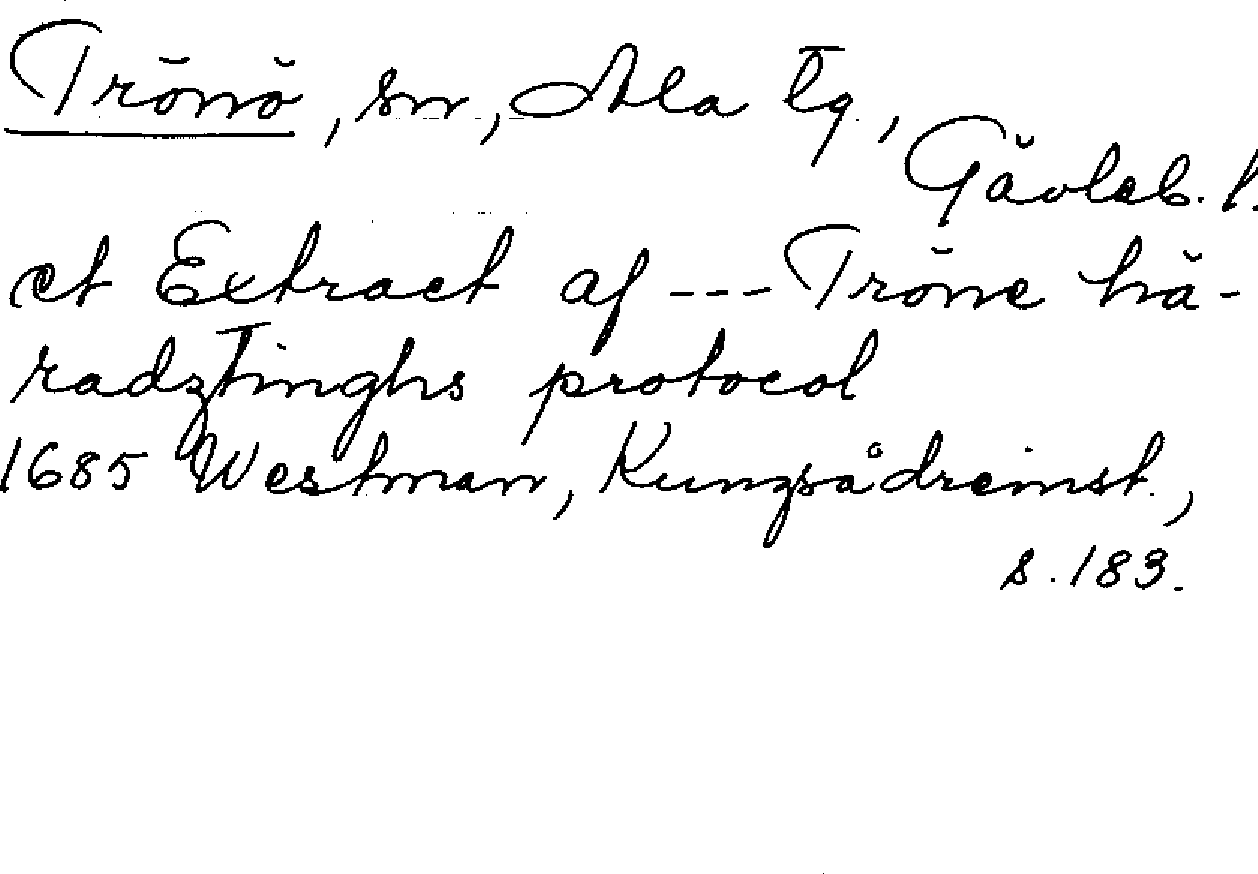 Trönö, sn, Ala tg.,
Gävleb. l.
et Extract af --- Tröne hä-
radztinghs protocol
1685 Westman, Kungsådreinst.,
s. 183.